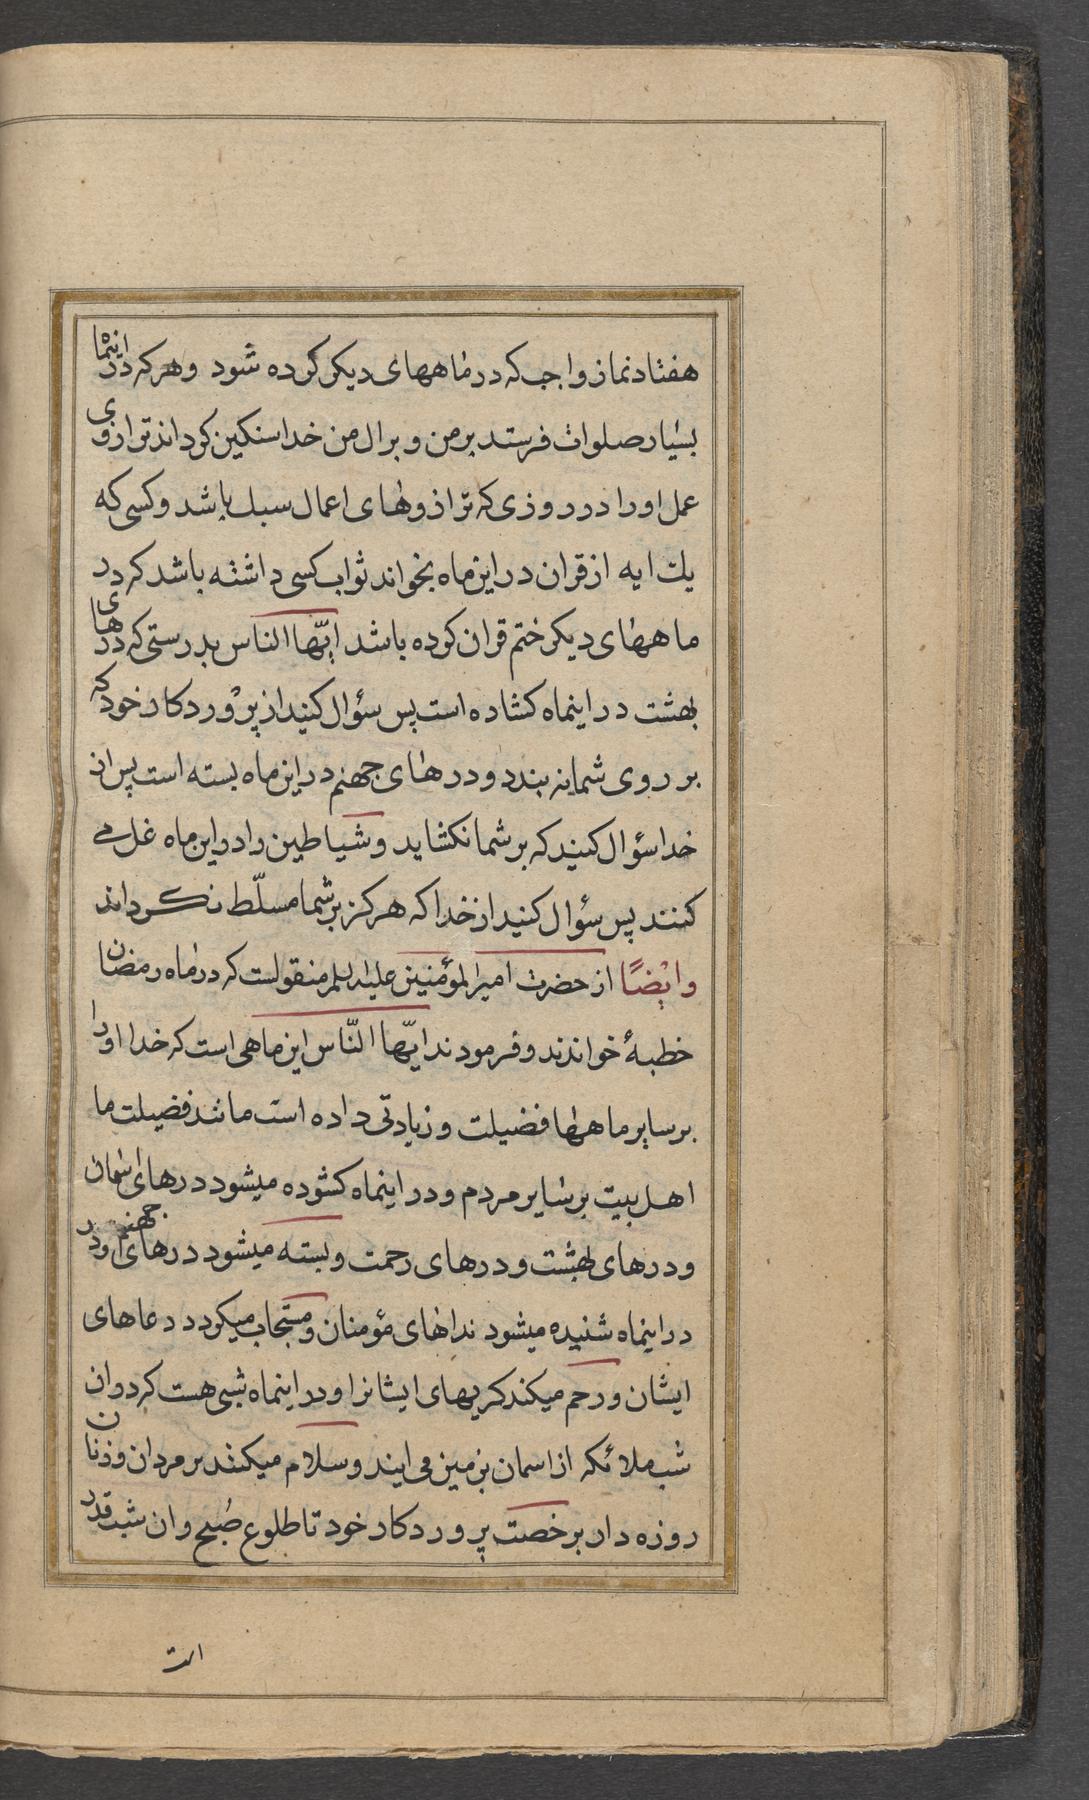 هفتاد نماز واجب که در ماههای دیکر کرده شود وهرکه در اینماه
بسیار صلوات فرستد بر من و بر ال من خدا سنکین کرداند ترازوی
عمل او را در روزی که ترازوهای اعمال سبک باشد و کسی که
یك ایه از قران در این ماه بخواند ثواب کسی داشته باشد که در
ماههای دیکر ختم قران کرده باشد ایّها الناس بدرستی که درهای
بهشت در اینماه کشاده است پس سؤال کنید از پروردکار خود که
بر روی شما نه بندد و درهای جهنم در این ماه بسته است پس از
خدا سؤال کنید که بر شما نکشاید و شیاطین را در این ماه غل می
کنند پس سؤال کنید از خدا که هرکز بر شما مسلّط نکرداند
وایْضًا از حضرت امیر المؤمنین علیه السلم منقولست که در ماه رمضان
خطبهٔ خواندند و فرمودند ایّها النّاس این ماهی است که خدا او را
بر سایر ماهها فضیلت و زیادتی داده است مانند فضیلت ما
اهل بیت بر سایر مردم و در اینماه کشوده میشود درهای اسمان
و درهای بهشت و درهای رحمت و بسته میشود درهای جهنم و در
در اینماه شنیده میشود نداهای مؤمنان و مستجاب میکردد دعاهای
ایشان و رحم میکند کریهای ایشانرا و در اینماه شبی هست که در ان
شب ملائکه از اسمان بزمین می ایند و سلام میکنند بر مردان و زنان
روزه دار بر خصت پروردکار خود تا طلوع صُبح و ان شب قدر
است